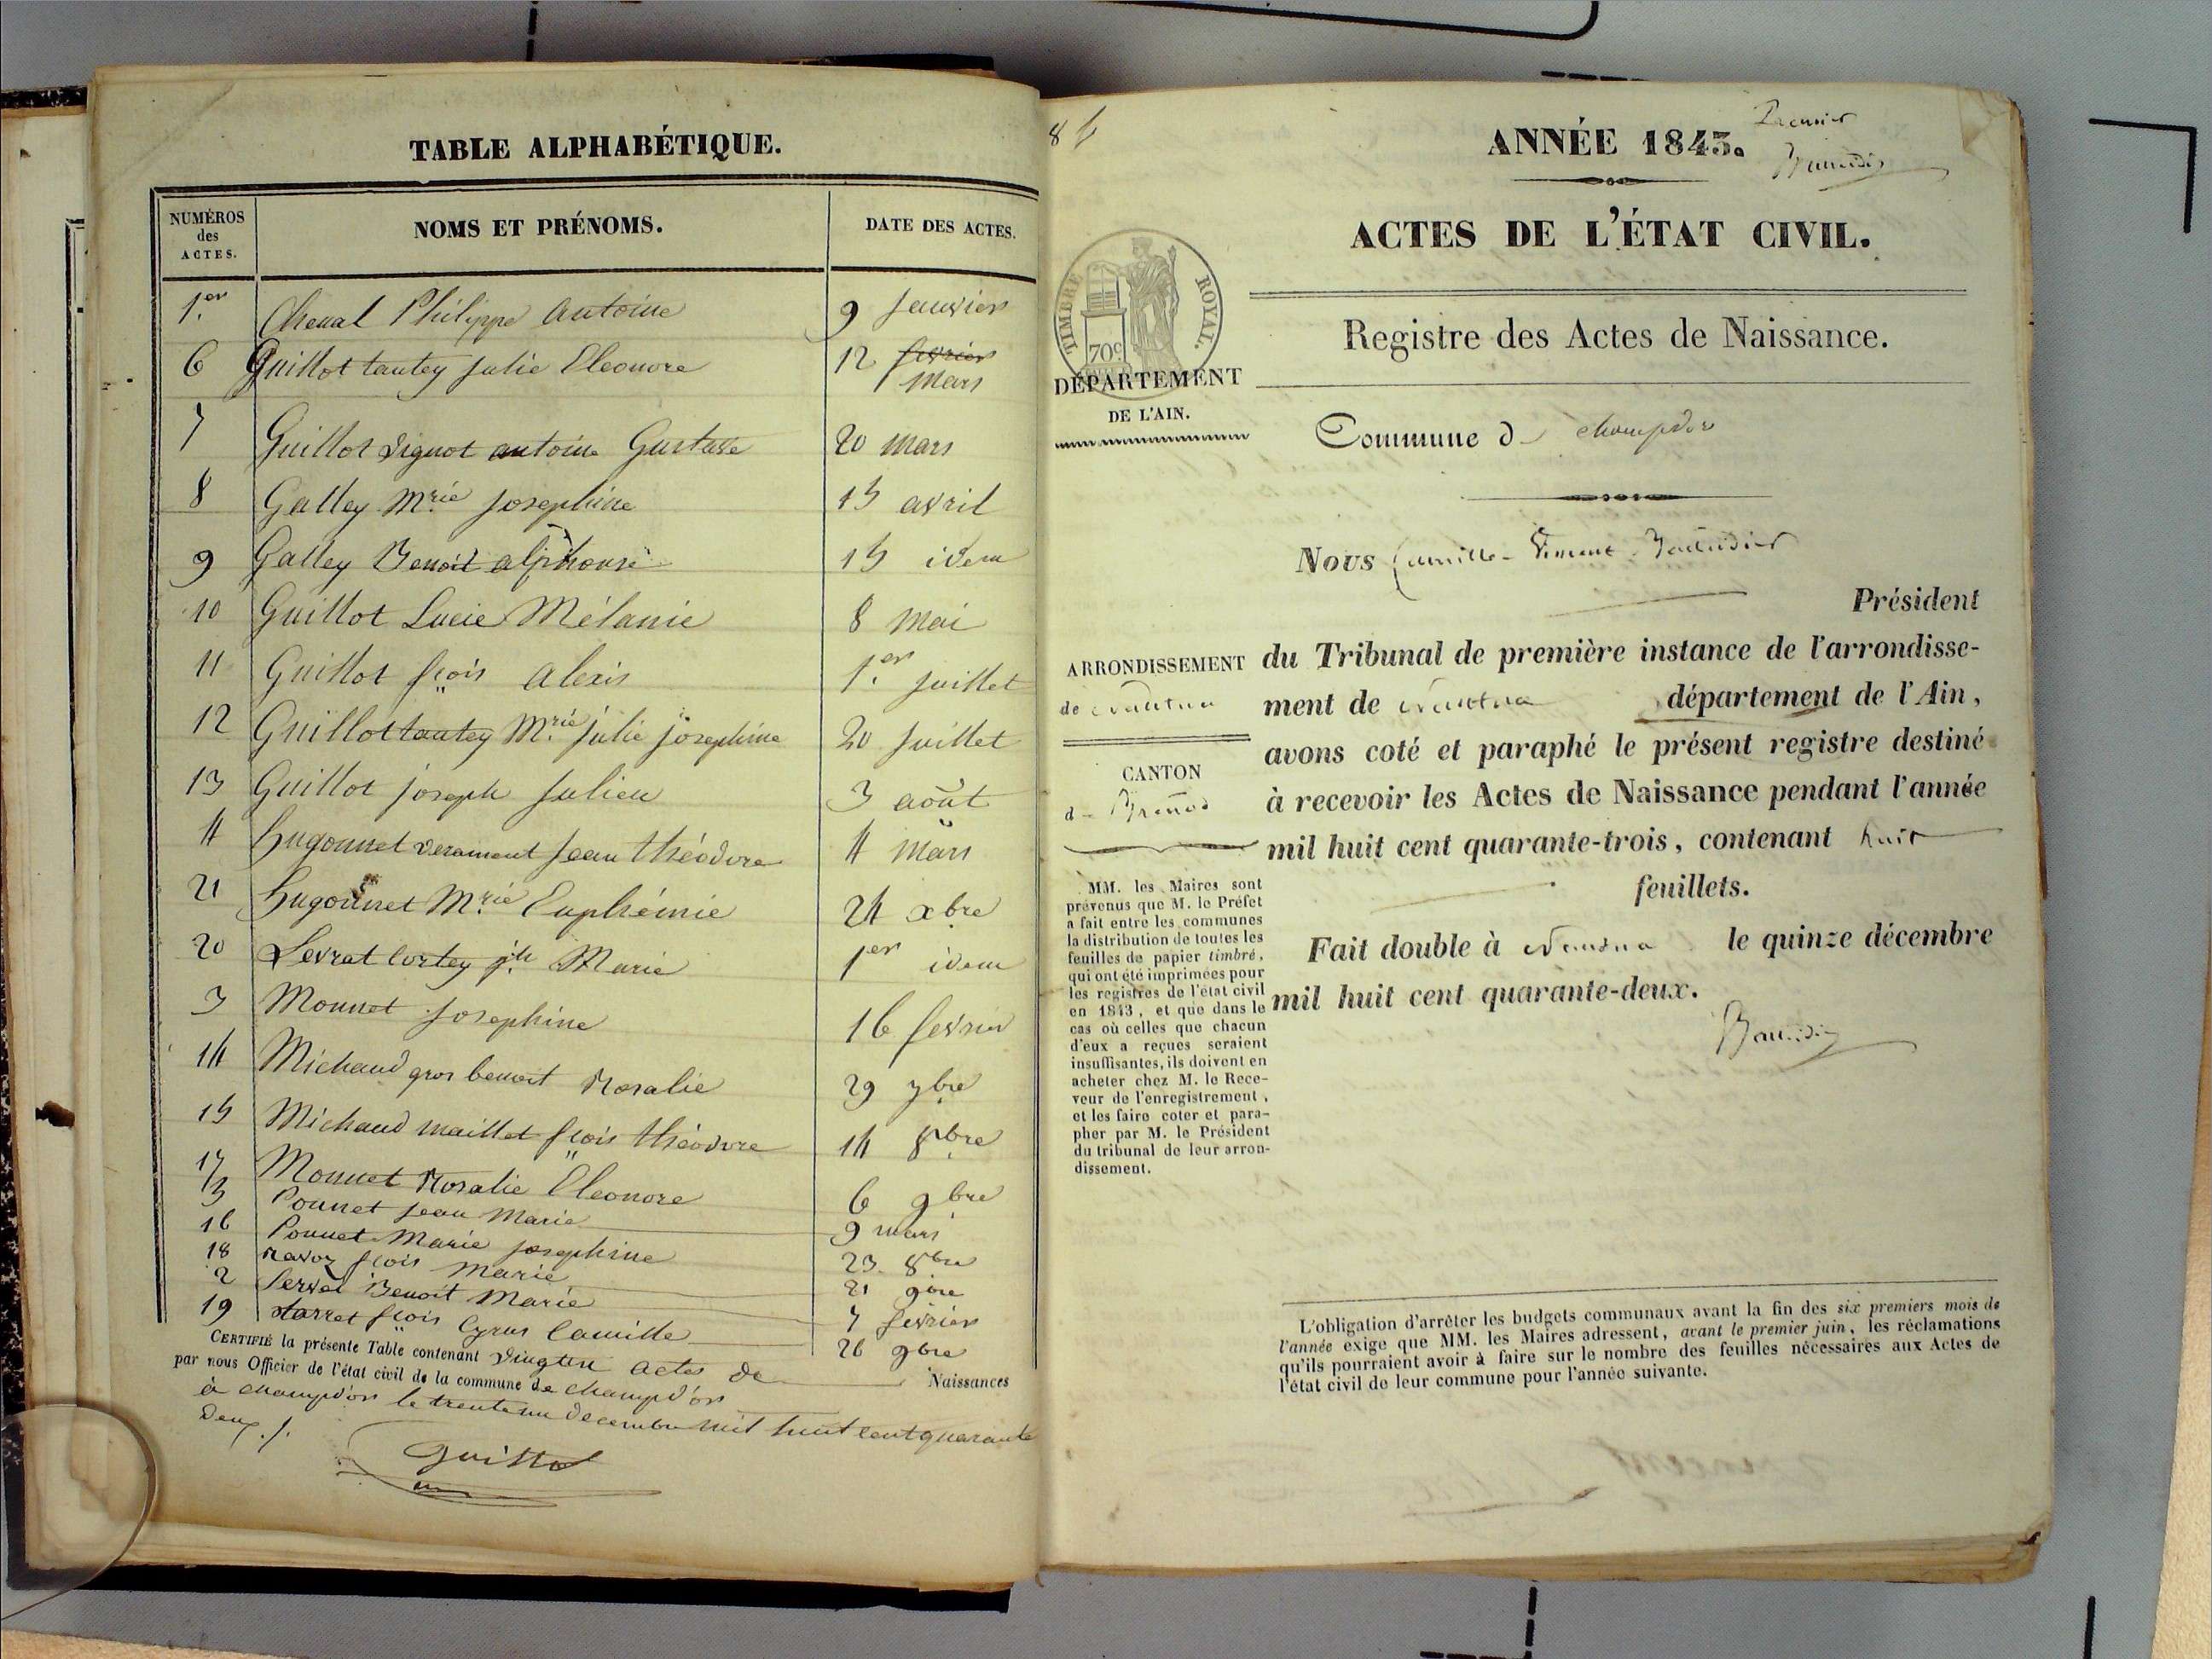 TABLE ALPHABÉTIQUE.
NUMÉROS des ACTES. NOMS ET PRÉNOMS. DATE DES ACTES.
1.er Cheval Philippe Antoine 9 Janvier
6 Guillot tantey Julie Eleonore 12 fevrier
Mars
7 Guillot Vignot antoine Gustave 20 mars
8 Galley M.rie Josephine 15 avril
9 Galley Benoit alphonse 15 idem
10 Guillot Lucie Mélanie 8 Mai
11 Guillot fçois Alexis 1.er Juillet
12 Guillot tantey M.rie julie josephine 20 Juillet
13 Guillot joseph Julien 3 août
4 hugonnet verament Jean théodore 4 Mars
21 hugonnet M.rie Euphémie 24 xbre
20 Levrat cortey j.h Marie 1er idem
3 Monnet Josephine 16 fevrier
14 Michaud gros benoit Rosalie 29 7bre
15 Michaud maillet fçois théodore 14 8bre
17 Monnet Rosalie Eleonore 6 9bre
5 Ponnet Jean Marie 9 mars
16 Ponnet Marie Josephine 23 8bre
18 Ravoz fçois Marie 21 9bre
2 Servet Benoit Marie 7 fevrier
19 fçois Cyrus Camille 26 9bre
CERTIFIÉ la présente Table contenant vingt un actes de Naissances
par nous Officier de l'état civil de la commune de champd'or
à champd'or le trente un decembre mil huit cent quarante
Deux ./.
Guillot
8 f
Premier
Baudin
ANNÉE 1843.
ACTES DE L'ÉTAT CIVIL.
TIMBRE ROYAL.
70c
Registre des Actes de Naissance.
DÉPARTEMENT
DE L'AIN.
Commune d champdor
Nous Camille
Président
ARRONDISSEMENT
de Nantua
CANTON
d Brénod
du Tribunal de première instance de l'arrondisse-
ment de Nantua département de l'Ain,
avons coté et paraphé le présent registre destiné
à recevoir les Actes de Naissance pendant l'année
mil huit cent quarante-trois, contenant huit
feuillets.
Fait double à Nantua le quinze décembre
mil huit cent quarante-deux.
MM. les Maires sont
prévenus que M. le Préfet
a fait entre les communes
la distribution de toutes les
feuilles de papier timbré,
qui ont été imprimées pour
les registres de l'état civil
en 1843, et que dans le
cas où celles que chacun
d'eux a reçues seraient
insuffisantes, ils doivent en
acheter chez M. le Rece-
veur de l'enregistrement,
et les faire coter et para-
pher par M. le Président
du tribunal de leur arron-
dissement.
L'obligation d'arrêter les budgets communaux avant la fin des six premiers mois de
l'année exige que MM. les Maires adressent, avant le premier juin, les réclamations
qu'ils pourraient avoir à faire sur le nombre des feuilles nécessaires aux Actes de
l'état civil de leur commune pour l'année suivante.